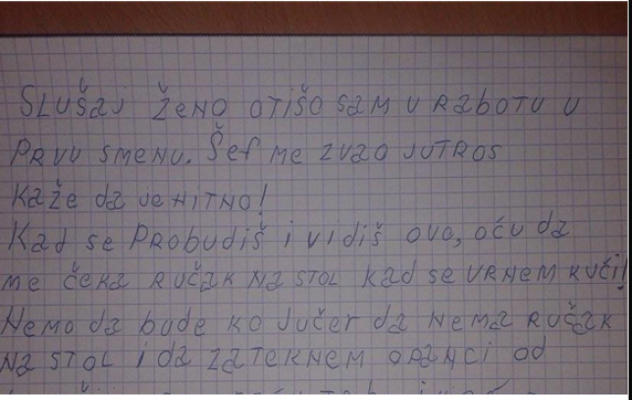 SLUŠAJ ŽENO OTIŠO SAM U RABOTU U
PRVU SMENU. ŠEF ME ZVAO JUTROS
KAŽE DA JE HITNO!
KAD SE PROBUDIŠ I VIDIŠ OVO, OĆU DA
ME ČEKA RUČAK NA STOL KAD SE VRNEM KUČI!
NEMO DA BUDE KO JUČER DA NEMA RUČAK
NA STOL I DA ZATEKNEM OPANCI OD